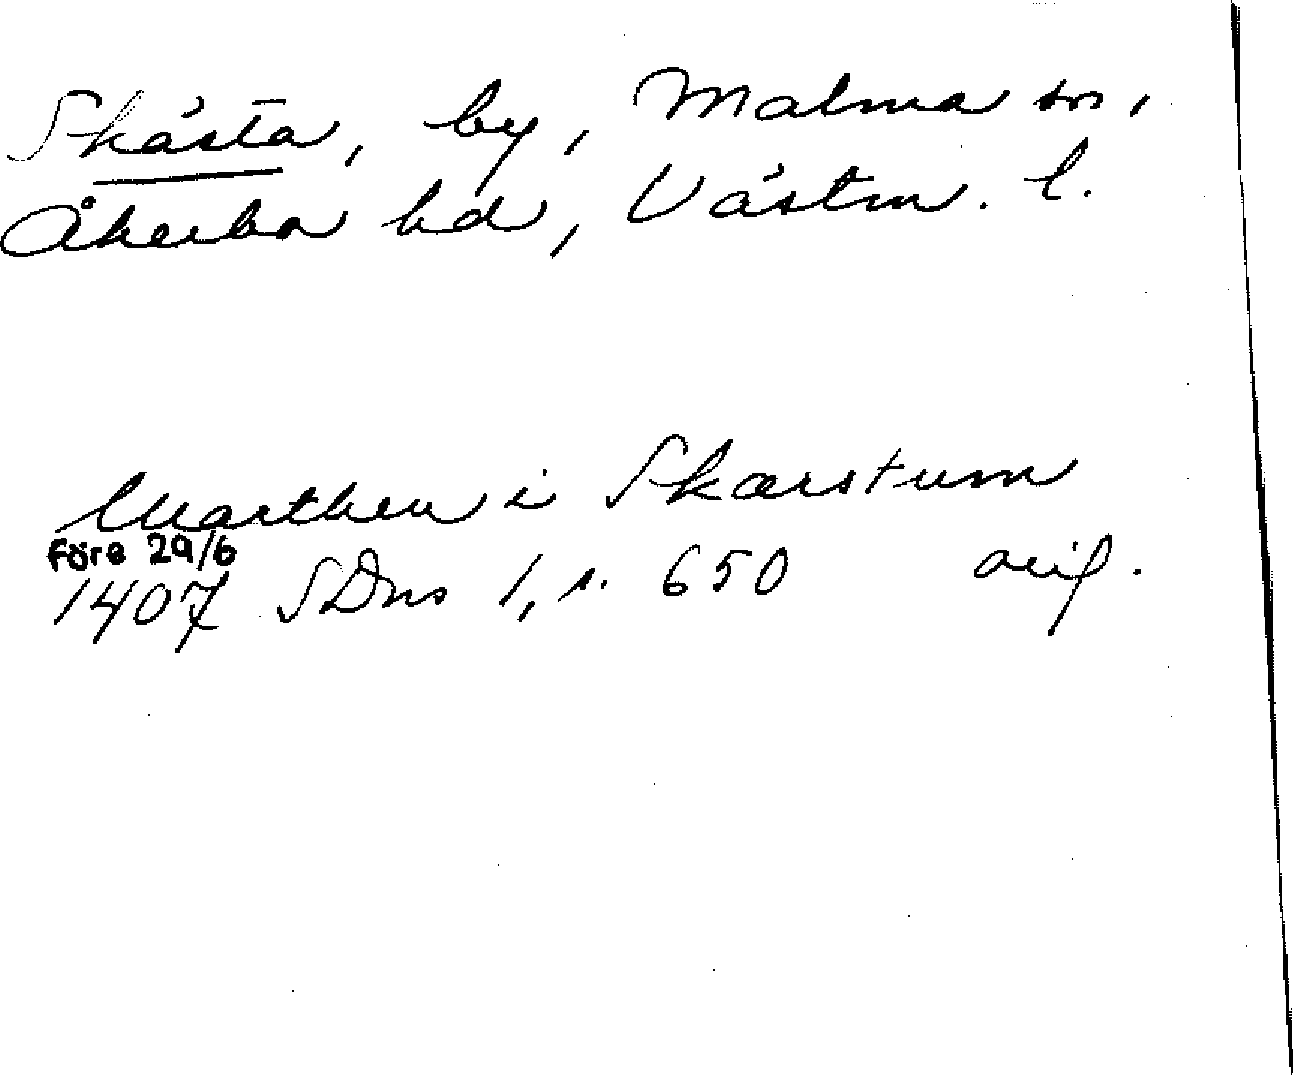 Skästa, by, Malma sn,
Åkerbo hd, Västm. l.
Marthen i Skærstum
Före 29/6
1407 SDns 1, s. 650 orig.